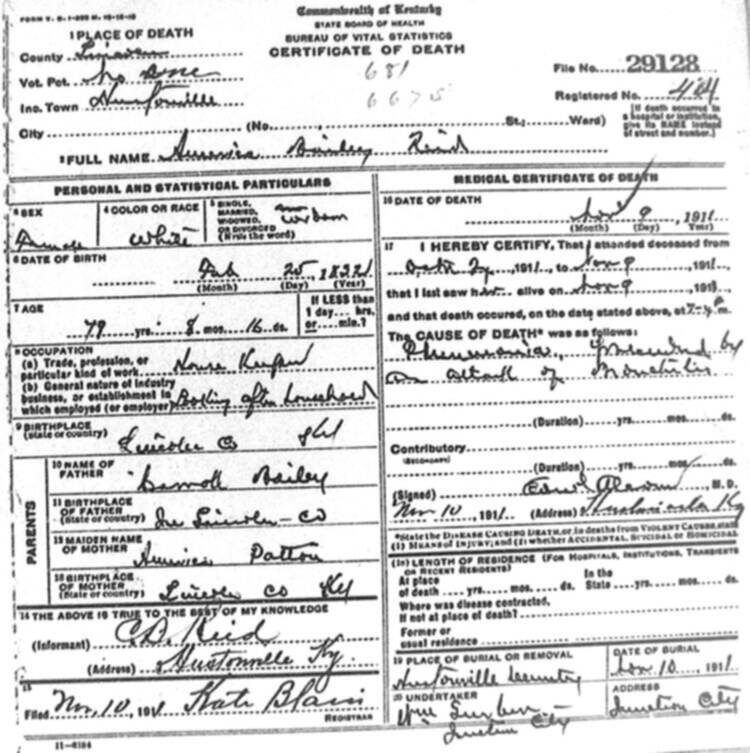 FORM V. S. 1-
Commonwealth of Kentucky
STATE BOARD OF HEALTH
BUREAU OF VITAL STATISTICS
CERTIFICATE OF DEATH
1 PLACE OF DEATH
County Lincoln
Vot. Pct.
Inc. Town Hustonville
City (No. St.; Ward)
681
6675
File No. 29128
Registered No.
[If death occurred in
a hospital or institution,
give its NAME instead
of street and number.]
2 FULL NAME America Bailey Reid
PERSONAL AND STATISTICAL PARTICULARS
3 SEX
Female
4 COLOR OR RACE
White
5 SINGLE,
MARRIED,
WIDOWED,
OR DIVORCED
(Write the word)
6 DATE OF BIRTH
Feb 25, 1832
(Month) (Day) (Year)
7 AGE
79 yrs. 8 mos. 16 ds.
If LESS than
1 day---- hrs.
or---- min.?
8 OCCUPATION
(a) Trade, profession, or
particular kind of work House Keeper
(b) General nature of industry
business, or establishment in
which employed (or employer) Looking after household
9 BIRTHPLACE
(State or country) Lincoln Co Ky
PARENTS
10 NAME OF
FATHER Bailey
11 BIRTHPLACE
OF FATHER
(State or country) Lincoln - Co
12 MAIDEN NAME
OF MOTHER America Patton
13 BIRTHPLACE
OF MOTHER
(State or country) Lincoln Co Ky
14 THE ABOVE IS TRUE TO THE BEST OF MY KNOWLEDGE
(Informant) C.B. Reid
(Address) Hustonville Ky.
15
Filed Nov, 10, 1911 Kate Blain
REGISTRAR
11-6184
MEDICAL CERTIFICATE OF DEATH
16 DATE OF DEATH
Nov 9, 1911
(Month) (Day) Year
17 I HEREBY CERTIFY, That I attended deceased from
191 , to Nov 9, 191
that I last saw her alive on Nov 9, 191
and that death occured, on the date stated above, at
The CAUSE OF DEATH* was as follows:
Pneumonia, Preceded by
an attack of Bronchitis
(Duration) yrs. mos. ds.
Contributory
(SECONDARY)
(Duration) yrs. mos. ds.
(Signed) M. D.
Nov 10, 191 (Address) Hustonville Ky
*State the DISEASE CAUSING DEATH, or, in deaths from VIOLENT CAUSES, state
(1) MEANS OF INJURY; and (2) whether ACCIDENTAL, SUICIDAL or HOMICIDAL
18 LENGTH OF RESIDENCE (FOR HOSPITALS, INSTITUTIONS, TRANSIENTS
OR RECENT RESIDENTS)
At place In the
of death yrs. mos. ds. State yrs. mos. ds.
Where was disease contracted,
If not at place of death?
Former or
usual residence
19 PLACE OF BURIAL OR REMOVAL
Hustonville Cemetery
DATE OF BURIAL
Nov 10, 1911
20 UNDERTAKER
Wm
Junction City
ADDRESS
Junction City